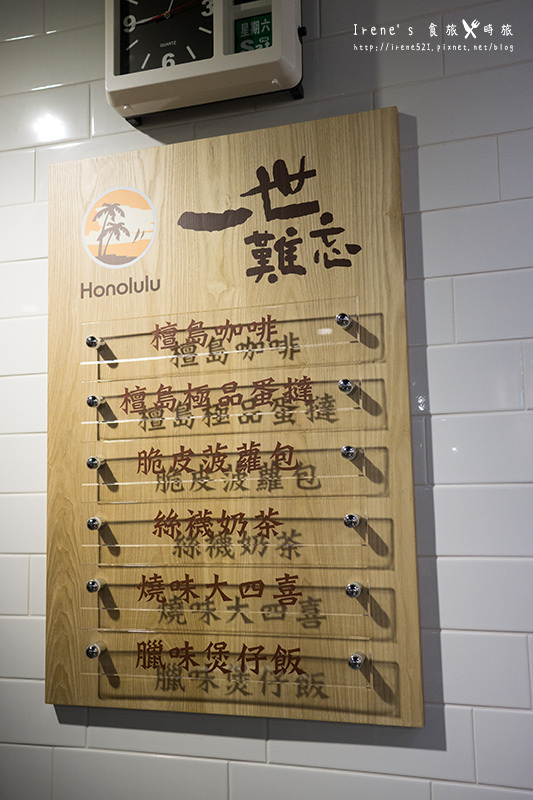 Irene's 食旅 時旅
http://irene521.pixnet.net/blog
QUARTZ
星期六
Honolulu
一世
難忘
檀島咖啡
檀島極品蛋撻
脆皮菠蘿包
絲襪奶茶
燒味大四喜
臘味煲仔飯